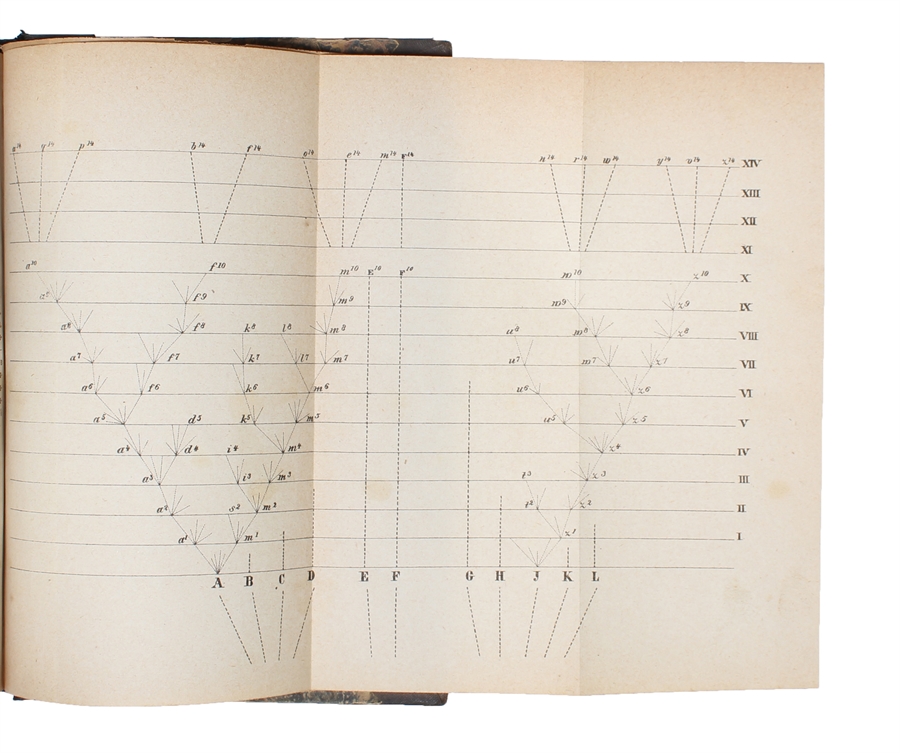 a¹⁴ q¹⁴ p¹⁴ b¹⁴ f¹⁴ o¹⁴ e¹⁴ m¹⁴ F¹⁴ n¹⁴ r¹⁴ w¹⁴ y¹⁴ v¹⁴ z¹⁴ XIV
XIII
XII
XI
a¹⁰ f¹⁰ m¹⁰ E¹⁰ F¹⁰ w¹⁰ z¹⁰ X
a⁹ f⁹ m⁹ w⁹ z⁹ IX
a⁸ f⁸ k⁸ l⁸ m⁸ u⁸ w⁸ z⁸ VIII
a⁷ f⁷ k⁷ l⁷ m⁷ u⁷ w⁷ z⁷ VII
a⁶ f⁶ k⁶ m⁶ u⁶ z⁶ VI
a⁵ d⁵ k⁵ m⁵ u⁵ z⁵ V
a⁴ d⁴ i⁴ m⁴ z⁴ IV
a³ i³ m³ t³ z³ III
a² s² m² t² z² II
a¹ m¹ z¹ I
A B C D E F G H J K L